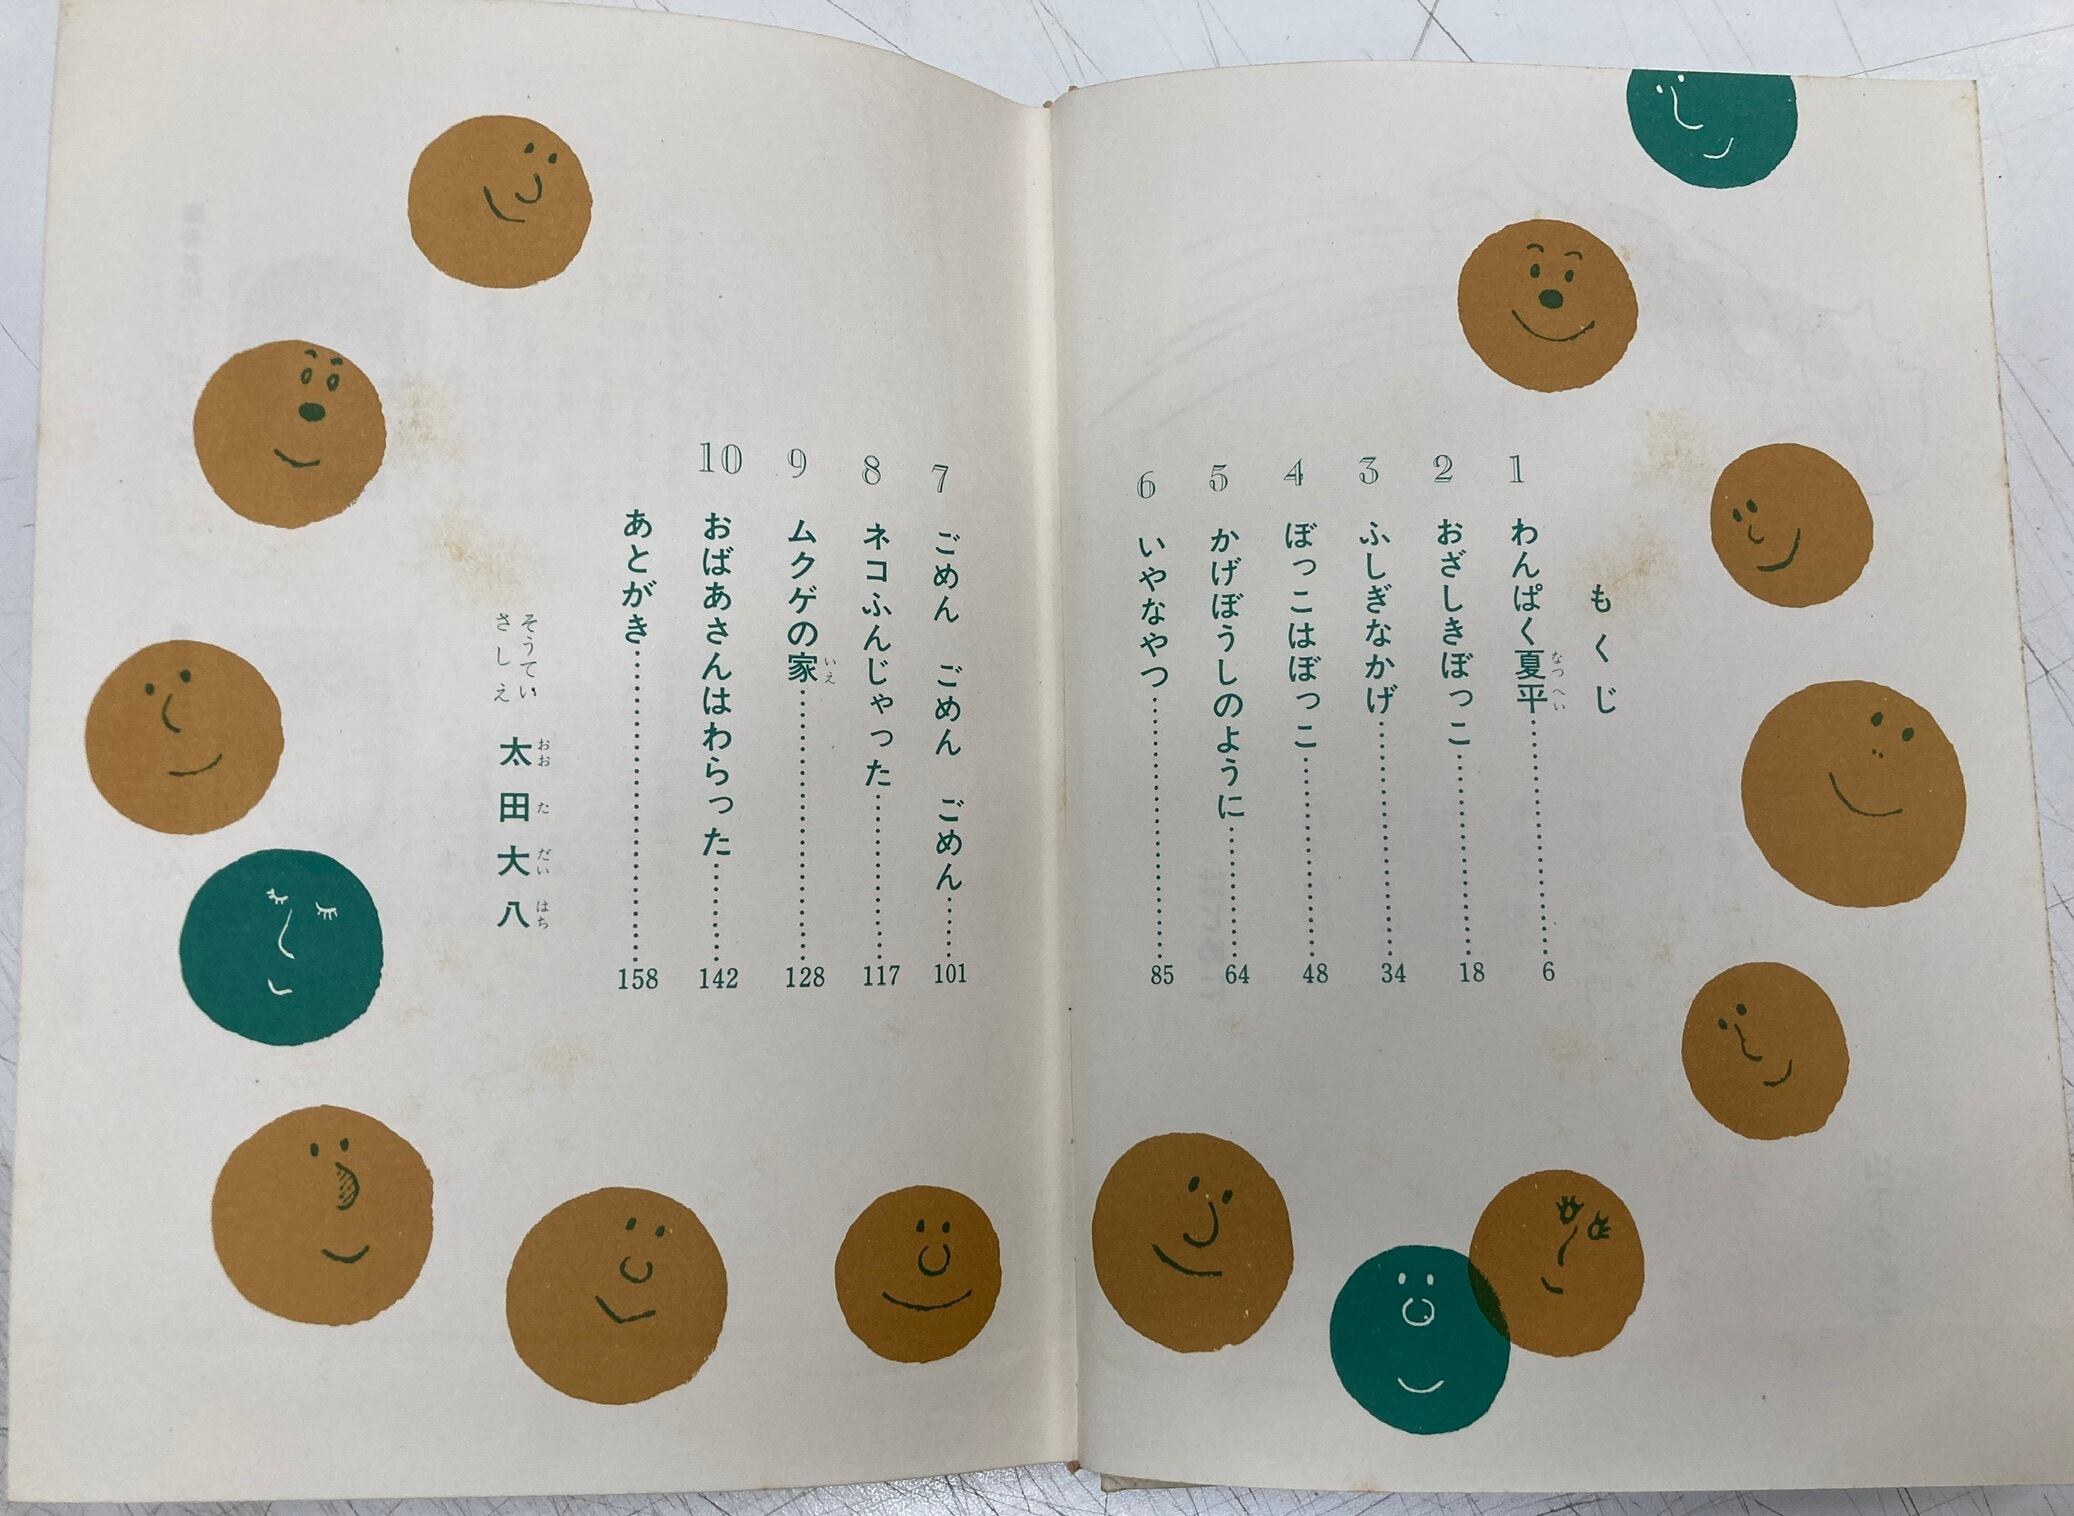 もくじ
1 わんぱく夏平……………………6
2 おざしきぼっこ……………………18
3 ふしぎなかげ……………………34
4 ぼっこはぼっこ……………………48
5 かげぼうしのように……………………64
6 いやなやつ……………………85
7 ごめん ごめん ごめん……………………101
8 ネコふんじゃった……………………117
9 ムクゲの家……………………128
10 おばあさんはわらった……………………142
あとがき……………………158
そうてい
さしえ
太田大八
なつへい
いえ
おおただいはち